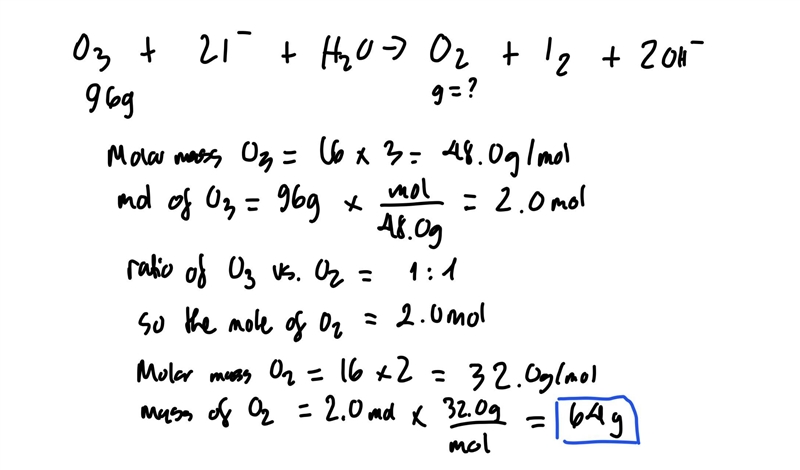 O₃ + 2I⁻ + H₂O → O₂ + I₂ + 2OH⁻
96g g = ?
Molar mass O₃ = 16 × 3 = 48.0g/mol
mol of O₃ = 96g × mol/48.0g = 2.0 mol
ratio of O₃ vs. O₂ = 1 : 1
so the mole of O₂ = 2.0mol
Molar mass O₂ = 16 × 2 = 32.0g/mol
mass of O₂ = 2.0 mol × 32.0g/mol = 64g